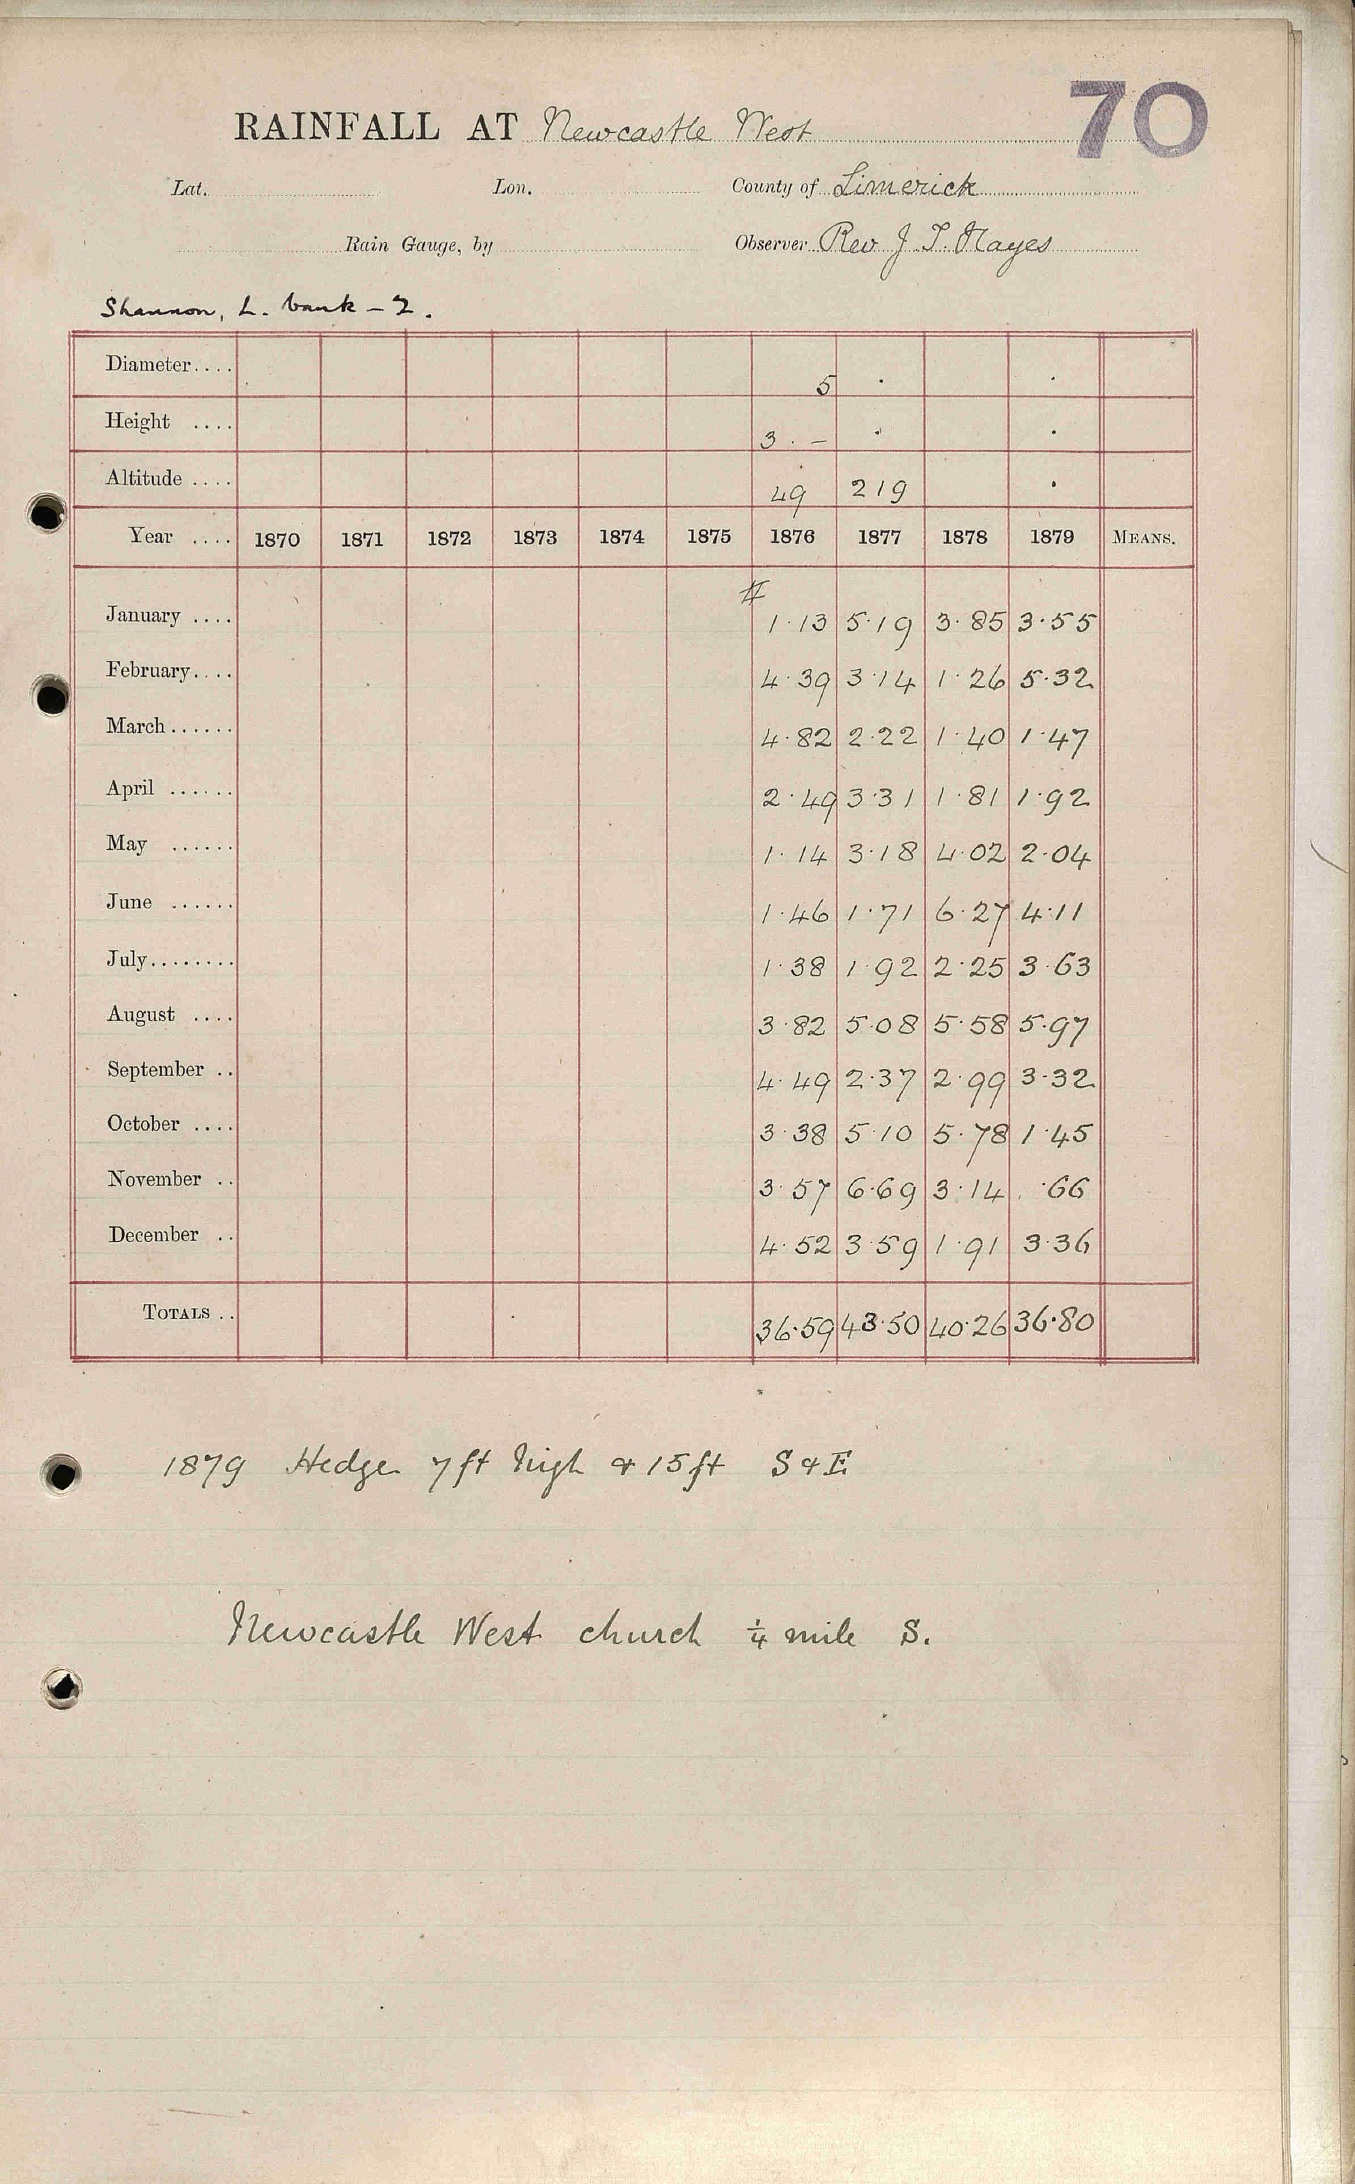 70
RAINFALL AT Newcastle West
Lat. Lon. County of Limerick
Rain Gauge, by Observer Rev J. T. Hayes
Shannon, L. bank - 2.
Diameter.... 5 . .
Height .... 3 . – . .
Altitude .... 49 219 .
Year .... 1870 1871 1872 1873 1874 1875 1876 1877 1878 1879 MEANS.
#
January .... 1.13 5.19 3.85 3.55
February.... 4.39 3.14 1.26 5.32
March...... 4.82 2.22 1.40 1.47
April ...... 2.49 3.31 1.81 1.92
May ...... 1.14 3.18 4.02 2.04
June ...... 1.46 1.71 6.27 4.11
July........ 1.38 1.92 2.25 3.63
August .... 3.82 5.08 5.58 5.97
September .. 4.49 2.37 2.99 3.32
October .... 3.38 5.10 5.78 1.45
November .. 3.57 6.69 3.14 .66
December .. 4.52 3.59 1.91 3.36
TOTALS .. 36.59 43.50 40.26 36.80
1879 Hedge 7 ft high & 15 ft S & E
Newcastle West church ¼ mile S.